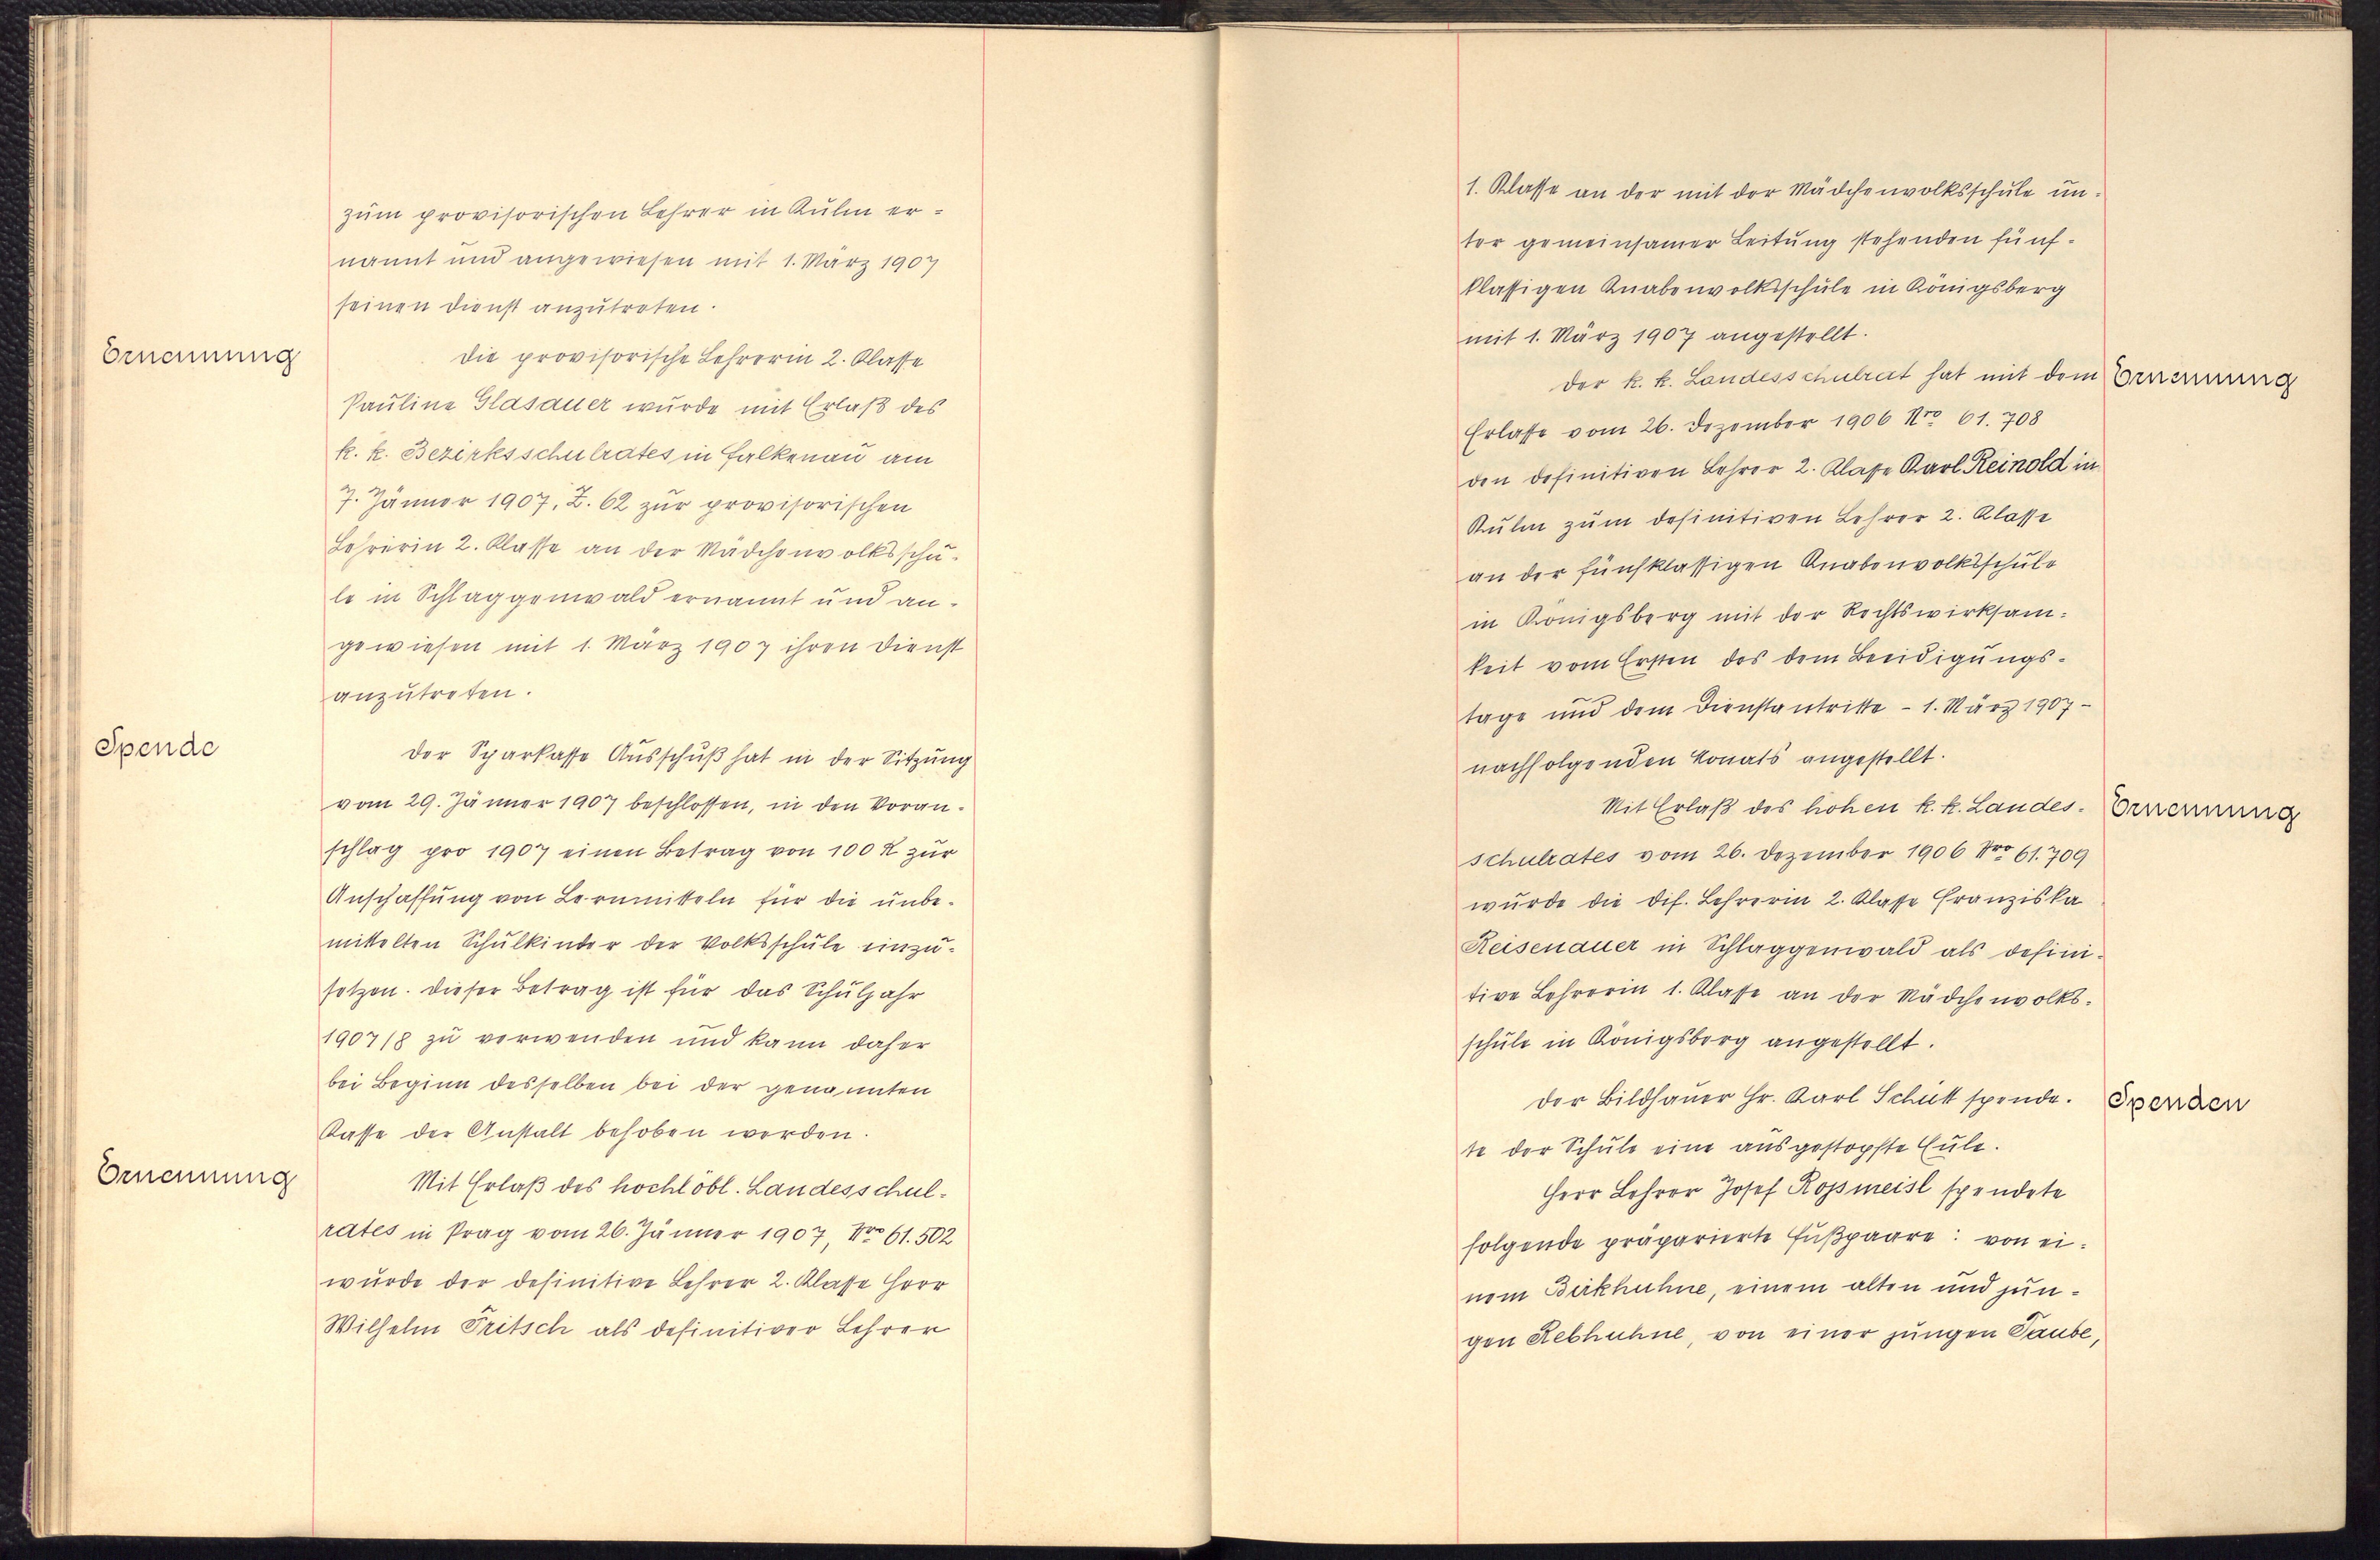 zum provisorischen Lehrer in Kulm er-
nannt und angewiesen mit 1. März 1907
seinen Dienst anzutreten.
Ernennung
Die provisorische Lehrerin 2. Klasse
Pauline Glasauer wurde mit Erlaß des
k. k. Bezirksschulrates in Falkenau am
7. Jänner 1907, Z. 62 zur provisorischen
Lehrerin 2. Klasse an der Mädchenvolksschu-
le in Schlaggenwald ernannt und an-
gewiesen mit 1. März 1907 ihren Dienst
anzutreten.
Spende
Der Sparkasse Ausschuß hat in der Sitzung
vom 29. Jänner 1907 beschlossen, in den Voran-
schlag pro 1907 einen Betrag von 100 K zur
Anschaffung von Lernmitteln für die unbe-
mittelten Schulkinder der Volksschule einzu-
setzen. Dieser Betrag ist für das Schuljahr
1907/8 zu verwenden und kann daher
bei Beginn desselben bei der genannten
Kasse der Anstalt behoben werden.
Ernennung
Mit Erlaß des hochlöbl. Landesschul-
rates in Prag vom 26. Jänner 1907, Nro 61.502
wurde der definitive Lehrer 2. Klasse Herr
Wilhelm Fritsch als definitiver Lehrer
1. Klasse an der mit der Mädchenvolksschule un-
ter gemeinsamer Leitung stehenden fünf-
klassigen Knabenvolksschule in Königsberg
mit 1. März 1907 angestellt.
Der k. k. Landesschulrat hat mit dem
Ernennung
Erlasse vom 26. Dezember 1906 Nro 61.708
den definitiven Lehrer 2. Klasse Karl Reinold in
Kulm zum definitiven Lehrer 2. Klasse
an der fünfklassigen Knabenvolksschule
in Königsberg mit der Rechtswirksam-
keit vom Ersten des dem Beeidigungs-
tage und dem Dienstantritte - 1. März 1907 -
nachfolgenden Monats angestellt.
Mit Erlaß des hohen k. k. Landes-
Ernennung
schulrates vom 26. Dezember 1906 Nro 61.709
wurde die def. Lehrerin 2. Klasse Franziska
Reisenauer in Schlaggenwald als defini-
tive Lehrerin 1. Klasse an der Mädchenvolks-
schule in Königsberg angestellt.
Der Bildhauer Hr. Karl Schütt spende-
Spenden
te der Schule eine ausgestopfte Eule.
Herr Lehrer Josef Rossmeisl spendete
folgende präparierte Fußpaare: von ei-
nem Birkhuhne, einem alten und jun-
gen Rebhuhne, von einer jungen Taube,